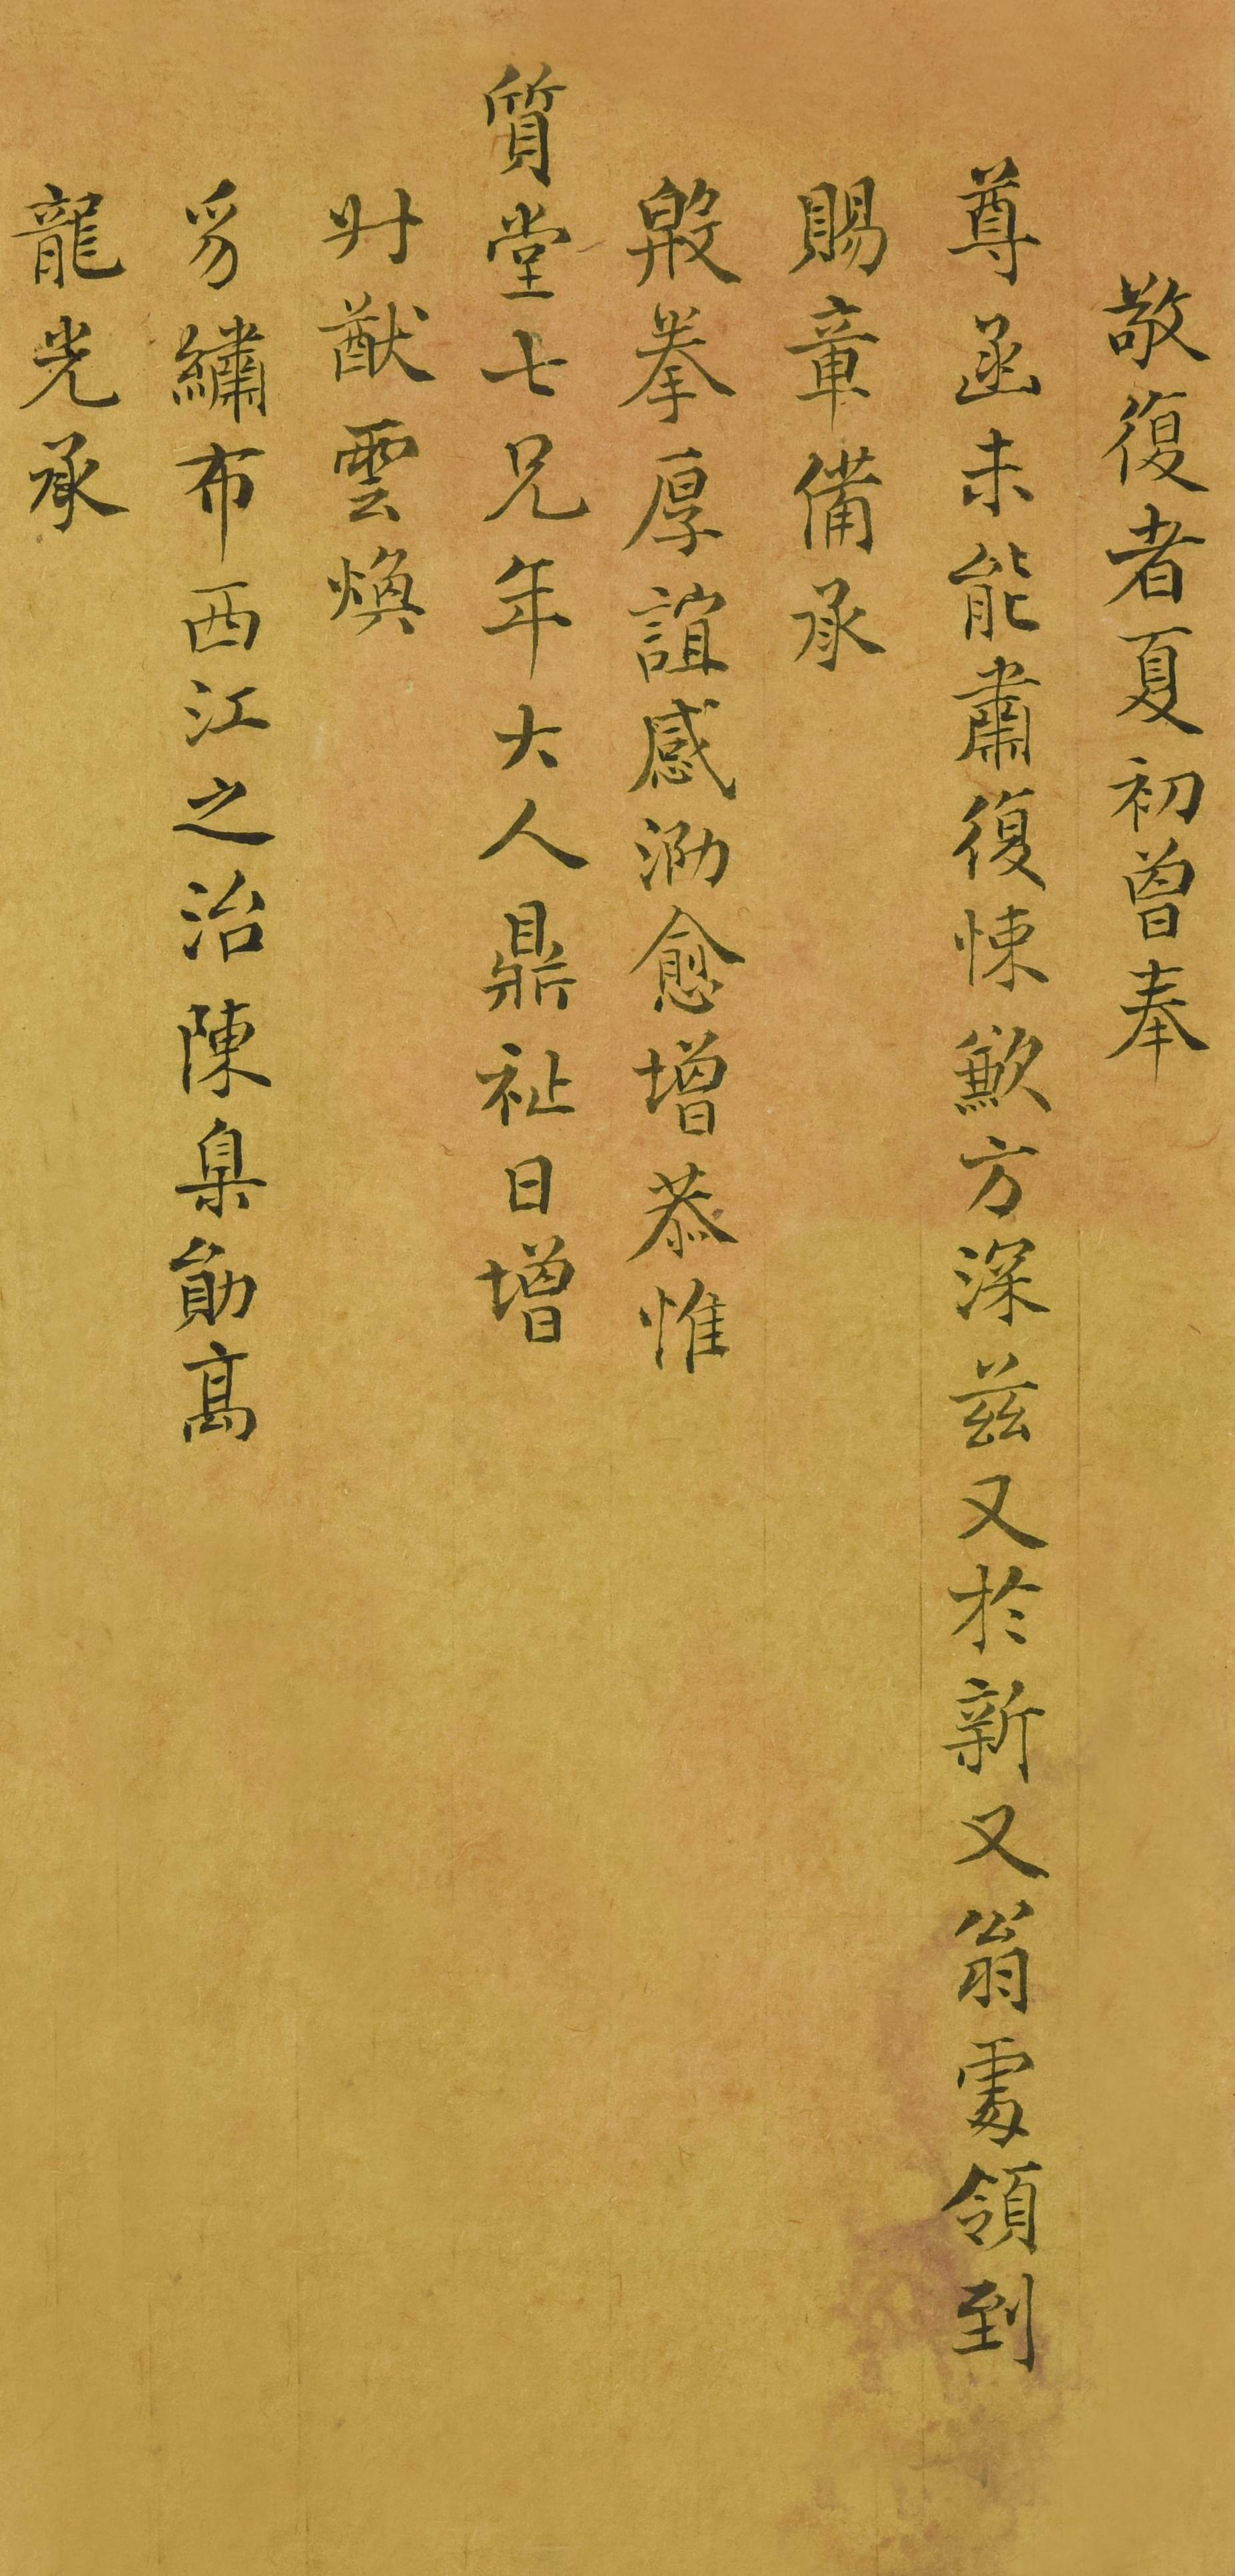 敬復者夏初曾奉
尊函未能肅復悚歉方深茲又於新又翁處領到
賜章備承
殷拳厚誼感泐愈增恭惟
質堂七兄年大人鼎祉日增
升猷雲煥
豸繡布西江之治陳臬勛高
龍光承